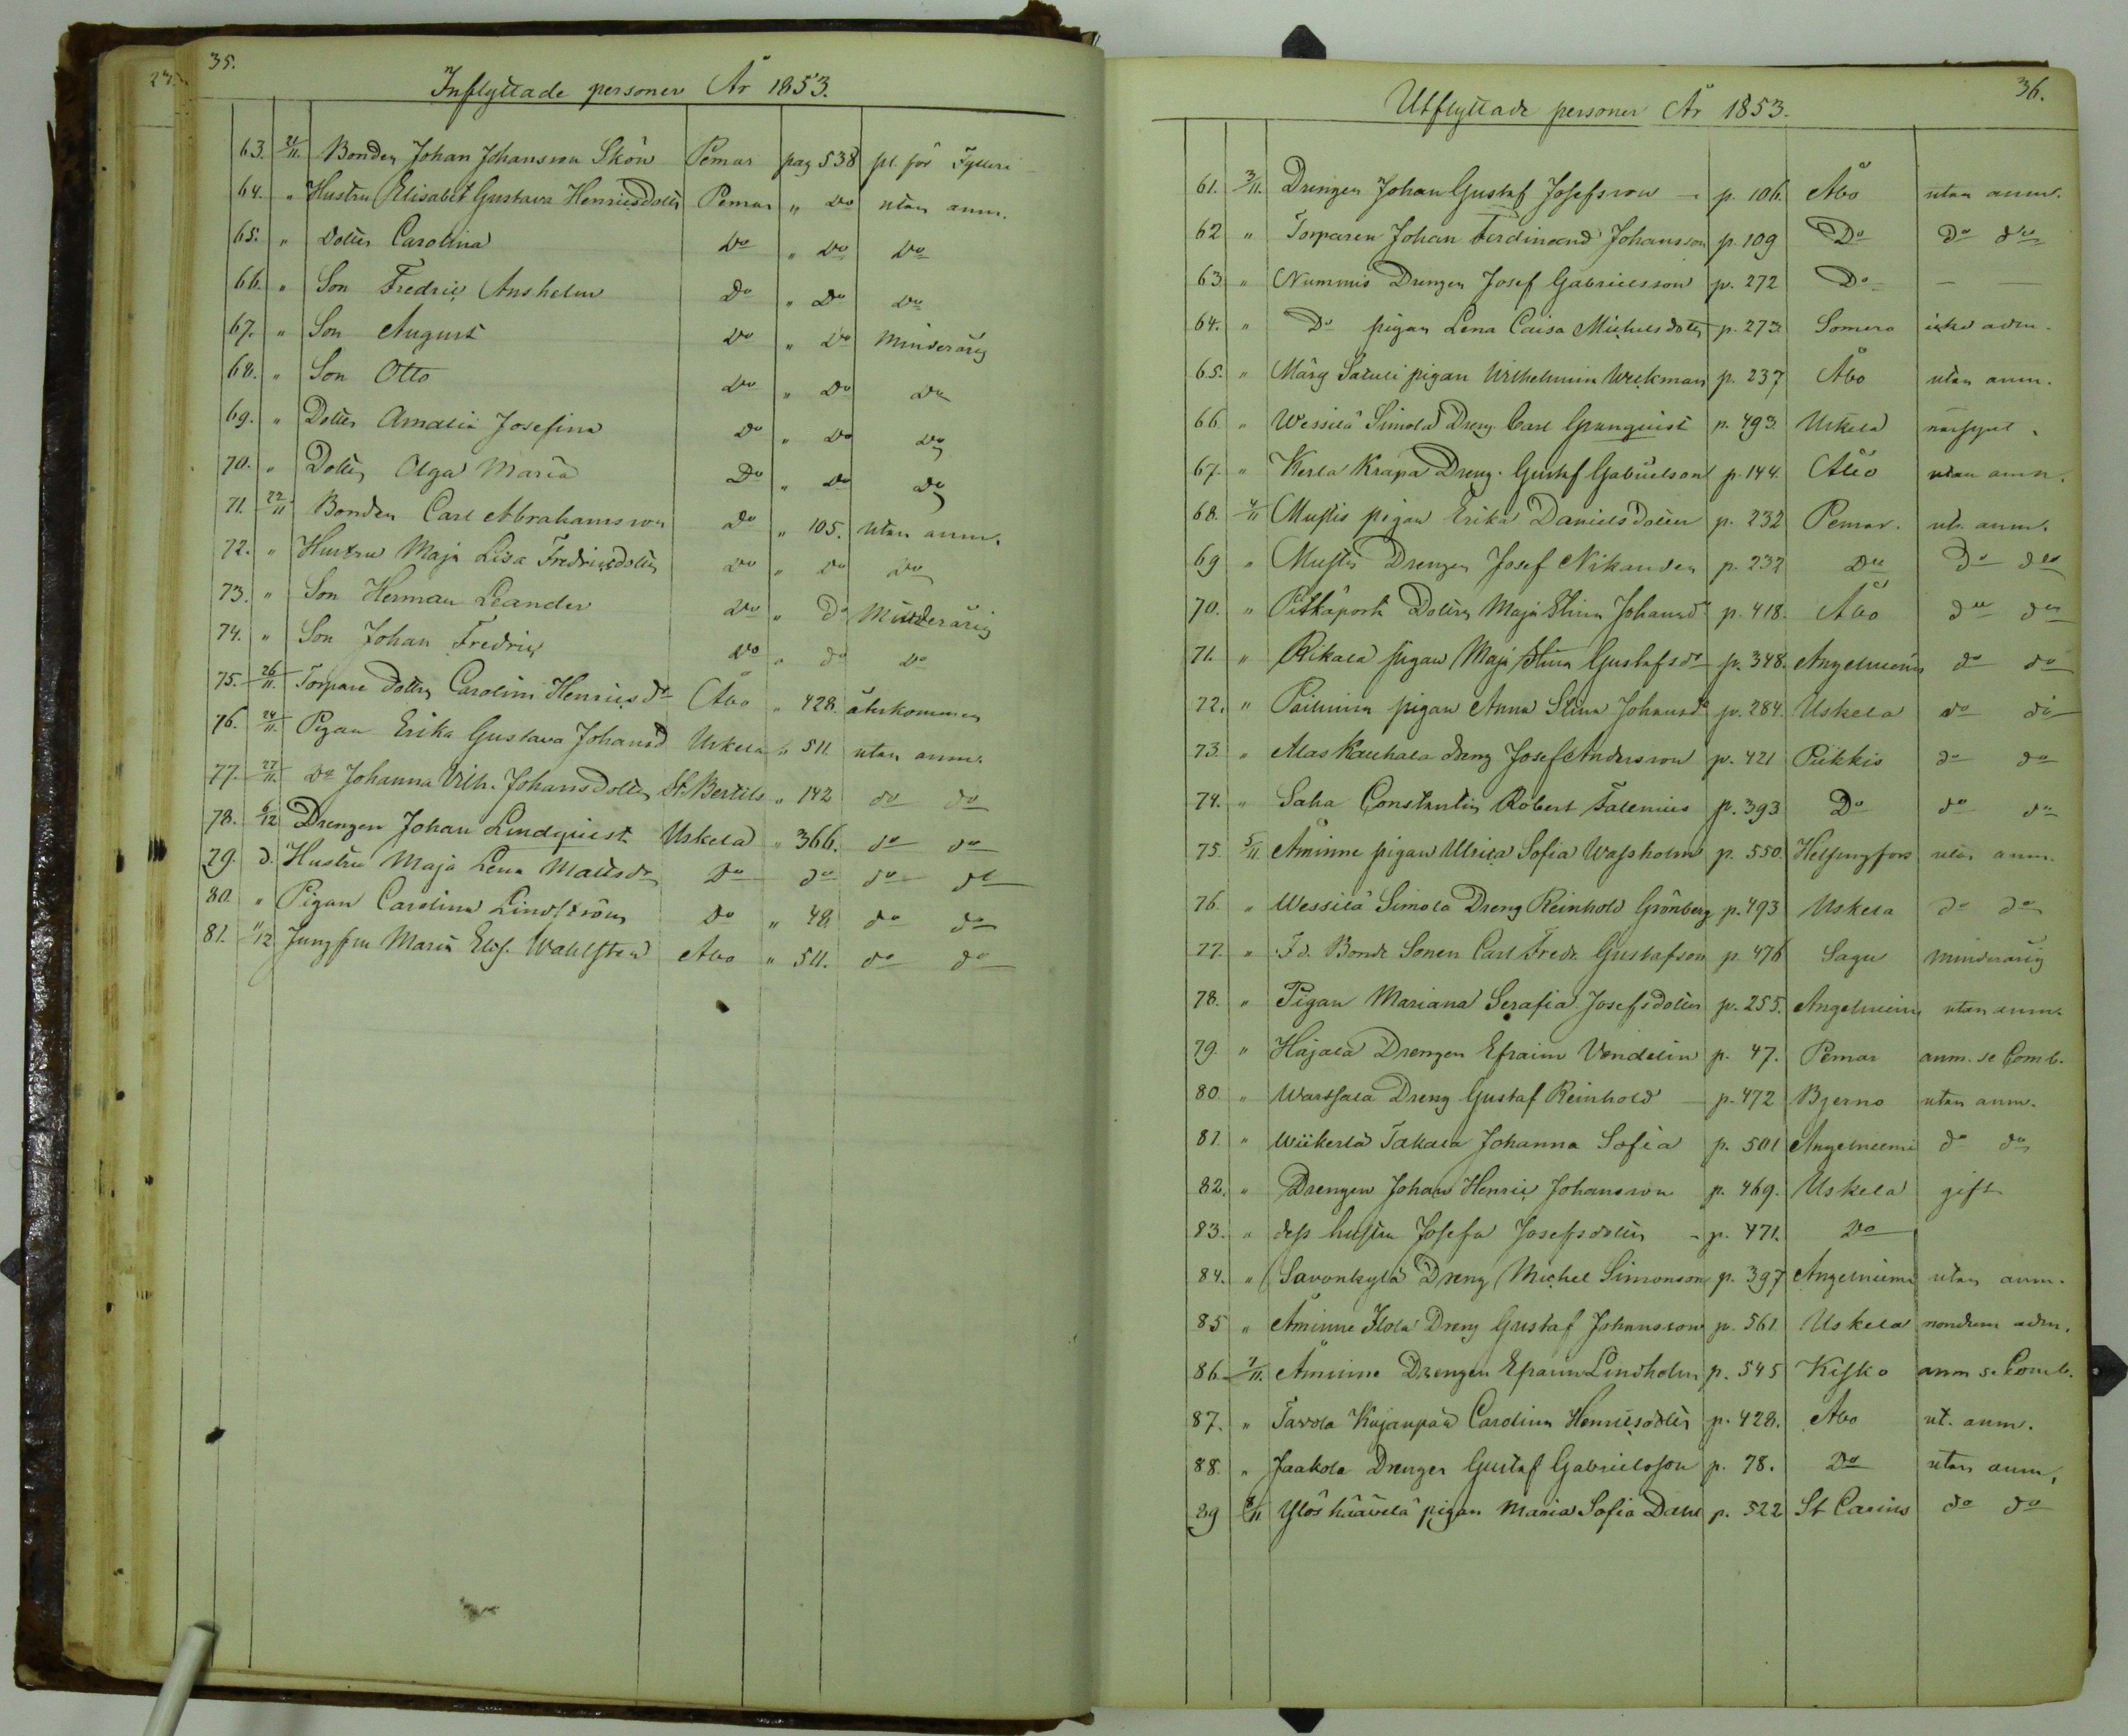 27.
35.
Inflyttade personer År 1853.
63. 21/11. Bonden Johan Johansson Skön Pemar pag 538 pl. för Fylleri
64. " Hustru Elisabet Gustava Henricsdotter Pemar " Do utan anm.
65. " Dotter Carolina Do " Do Do
66. " Son Fredric Anshelm Do " Do Do
67. " Son August Do " Do Minderårig
68. " Son Otto Do " Do Do
69. " Dotter Amalia Josefina Do " Do Do
70. " Dotter Olga Maria Do " Do Do
71. 22/11 Bonden Carl Abrahamsson Do " 105. utan anm.
72. " Hustru Maja Lisa Fredricsdotter Do " Do Do
73. " Son Herman Leander Do " Do Minderårig
74. " Son Johan Fredric Do " do Do
75. 26/11. Torpare dotter Carolina Henricsdr Åbo " 428. återkommen
76. 24/11. Pigan Erika Gustava Johansd Uskela " 511. utan anm.
77. 27/11. Do Johanna Vilh. Johansdotter St. Bertils " 142 do do
78. 6/12 Drengen Johan Lindquist Uskela " 366. do do
79. d. Hustru Maja Lena Mattsdr Do do do do
80. " Pigan Carolina Lindström Do " 48 do do
81. 11/12 Jungfru Maria Elis. Wahlsten Åbo " 511. do do
36.
Utflyttade personer År 1853.
61. 3/11. Drengen Johan Gustaf Josefsson - p. 106. Åbo utan anm.
62 " Torparen Johan Ferdinand Johansson p. 109 Do Do do
63. " Nummis Drengen Josef Gabrielsson p. 272 Do - - -
64. " Do pigan Lena Caisa Michelsdotter p. 273 Somero icke adm.
65. " Märy Satuli pigan Wilhelmina Weckman p. 237 Åbo utan anm.
66. " Wessilä Simola Dreng Carl Granquist p. 493. Uskela
67. " Kerla Krapa Dreng. Gustaf Gabrielson p. 144. Åbo utan anm.
68. 4/11 Mustis pigan Erika Danielsdotter p. 232 Pemar. ut. anm.
69 " Mustis Drengen Josef Nikander p. 232 Do Do do
70. " Pitkäporti Dotter Maja Stina Johansdr p. 418. Åbo do do
71. " Rikala pigan Maja Stina Gustafsdr p. 348. Angelniemi do do
72. " Pailunna pigan Anna Stina Johansdr p. 284. Uskela do do
73. " Alas Kauhala dreng Josef Andersson p. 421 Pikkis do do
74. " Saha Constantin Robert Talenius p. 393 Do do do
75. 5/11 Åminne pigan Ulrica Sofia Wassholm p. 550. Helsingfors utan anm.
76. " Wessilä Simola Dreng Reinhold Grönberg p. 493 Uskela do do
77. " Fd. Bonde Sonen Carl Fredr. Gustafson p. 476 Sagu minderårig
78. " Pigan Mariana Serafia Josefsdotter p. 255. Angelniemi utan anm.
79. " Hajala Drengen Efraim Vendelin p. 47. Pemar anm. se Comb.
80. " Wartsala Dreng Gustaf Reinhold - p. 472 Bjerno utan anm.
81. " Wiikerlä Takala Johanna Sofia p. 501 Angelniemi do do
82. " Drengen Johan Henric Johansson p. 469. Uskela gift
83. " dess hustru Josefa Josefsdotter - p. 471. Do
84. " Savonkylä Dreng Michel Simonson p. 397 Angelniemi utan anm.
85 " Åminne Ilola Dreng Gustaf Johansson p. 561 Uskela nondum adm.
86. 7/11. Åminne Drengen Efraim Lindholm p. 545 Kisko anm se Comb.
87. " Tavola Kujanpää Carolina Henricsdotter p. 428. Åbo ut. anm.
88. " Jaakola Drengen Gustaf Gabrielsson p. 78. Do utan anm,
89 8/11 Ylös häävelä pigan Maria Sofia Dahl p. 522 St Carins do do